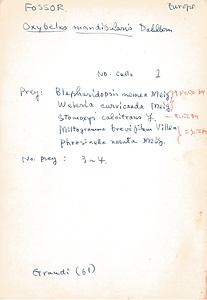 FOSSOR. Europe
Oxybelus mandibularis Dahlbom
No. Cells 1
Prey: Blepharidopsis nemea Meig.
Weberia curvicauda Meig.
Stomoxys calcitrans L.
Miltogramma brevipilum Villen
Phrosinella nasuta Meig.
No. prey: 3~4.
Grandi (61)